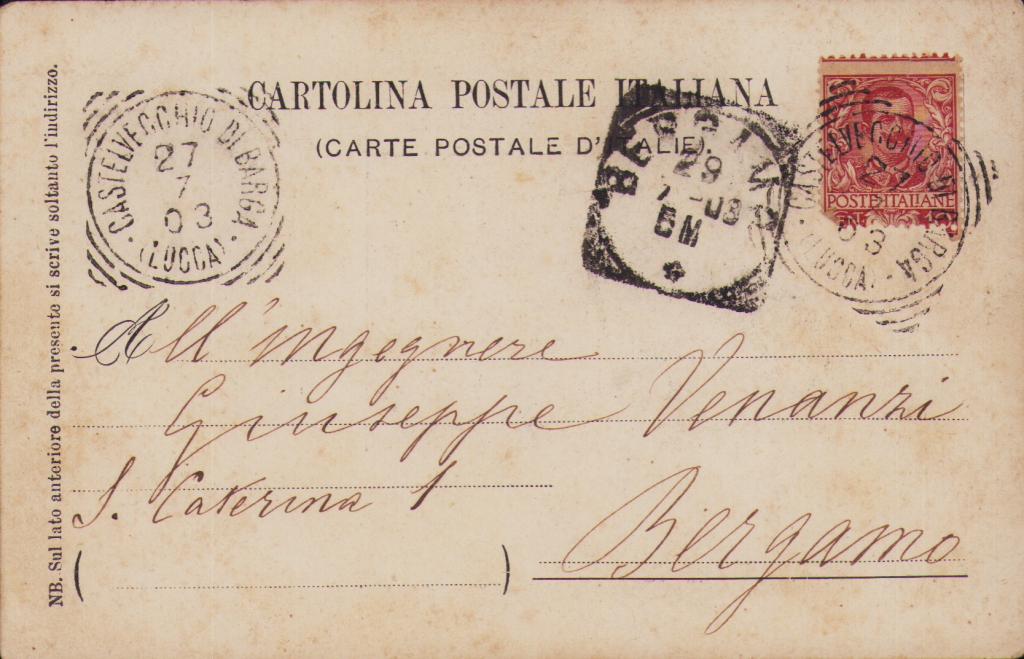 CARTOLINA POSTALE ITALIANA
(CARTE POSTALE D'ITALIE).
CASTELVECCHIO DI BARGA
27
7
03
(LUCCA)
BERGAMO
29
7-03
6M
POSTE ITALIANE
CASTELVECCHIO DI BARGA
27
7
03
(LUCCA)
All'ingegnere
Giuseppe Venanzi
S. Caterina 1
Bergamo
( )
NB. Sul lato anteriore della presente si scrive soltanto l'indirizzo.